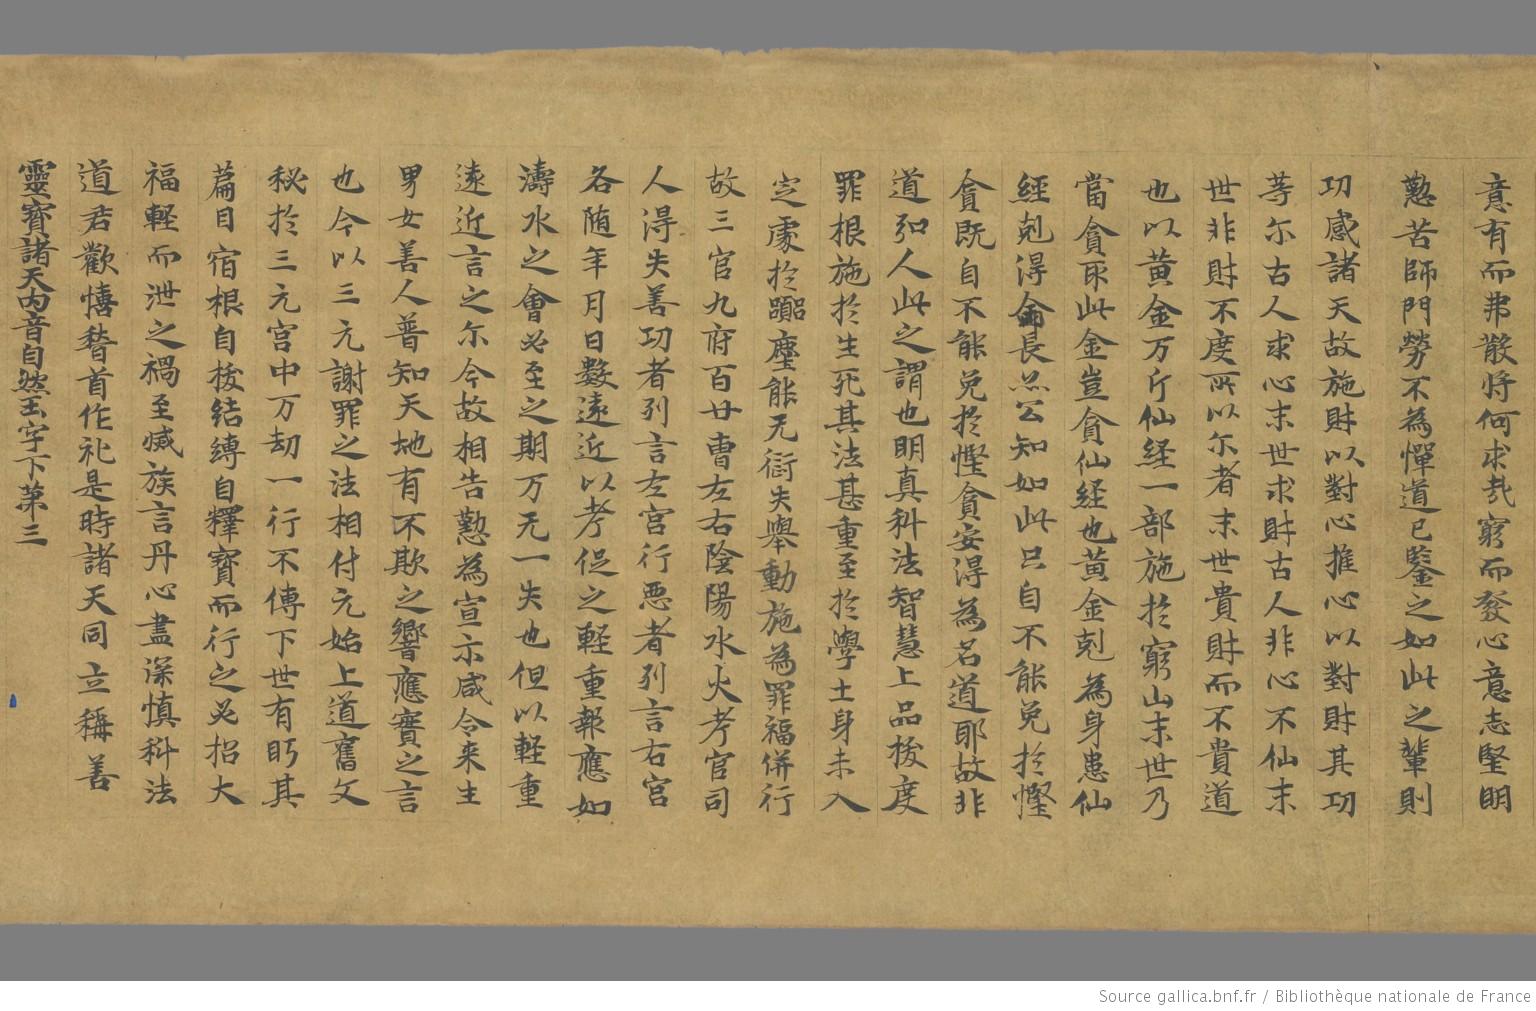 意有而弗散將何求哉窮而發心意志堅明
懃苦師門勞不為憚道已鑒之如此之輩則
功感諸天故施財以對心推心以對財其功
等尓古人求心末世求財古人非心不仙末
世非財不度所以尓者末世貴財而不貴道
也以黄金万斤仙経一部施扵窮山末世乃
當貪取此金豈貪仙経也黄金剋為身患仙
經剋得金長无公知如此只自不能免扵慳
貪既自不能免扵慳貪安得為名道耶故非
道弘人此之謂也明真科法智慧上品拔度
罪根施扵生死其法甚重至扵學士身未入
定處扵嚻塵能无衍失舉動施為罪福併行
故三官九府百廿曹左右陰陽水火考官司
人得失善功者列言左宫行惡者列言右宫
各随年月日數遠近以考促之輕重報應如
濤水之會必至之期万无一失也但以軽重
遠近言之尓今故相告懃為宣示咸令来生
男女善人普知天地有不欺之響應實之言
也今以三元謝罪之法相付元始上道舊文
秘扵三元宫中万劫一行不傳下世有眄其
萹目宿根自拔結縛自釋寳而行之必招大
福輕而泄之禍至滅族言丹心盡深慎科法
道君歡憘稽首作礼是時諸天同立稱善
靈寳諸天内音自然玉字下第三
Source gallica.bnf.fr / Bibliothèque nationale de France